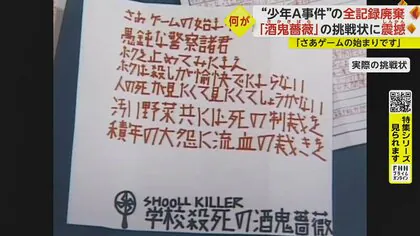 何が
“少年A事件”の全記録廃棄
「酒鬼薔薇」の挑戦状に震撼
「さあゲームの始まりです」
実際の挑戦状
さあゲームの始ま
愚鈍な警察諸君
ボクを止めてみたまえ
ボクは殺しが愉快でたまらない
人の死が見たくて見たくてしょうがない
汚い野菜共には死の制裁を
積年の大怨に流血の裁きを
SHOOLL KILLER
学校殺死の酒鬼薔薇
特集シリーズ
見られます
FNN
プライム
オンライン